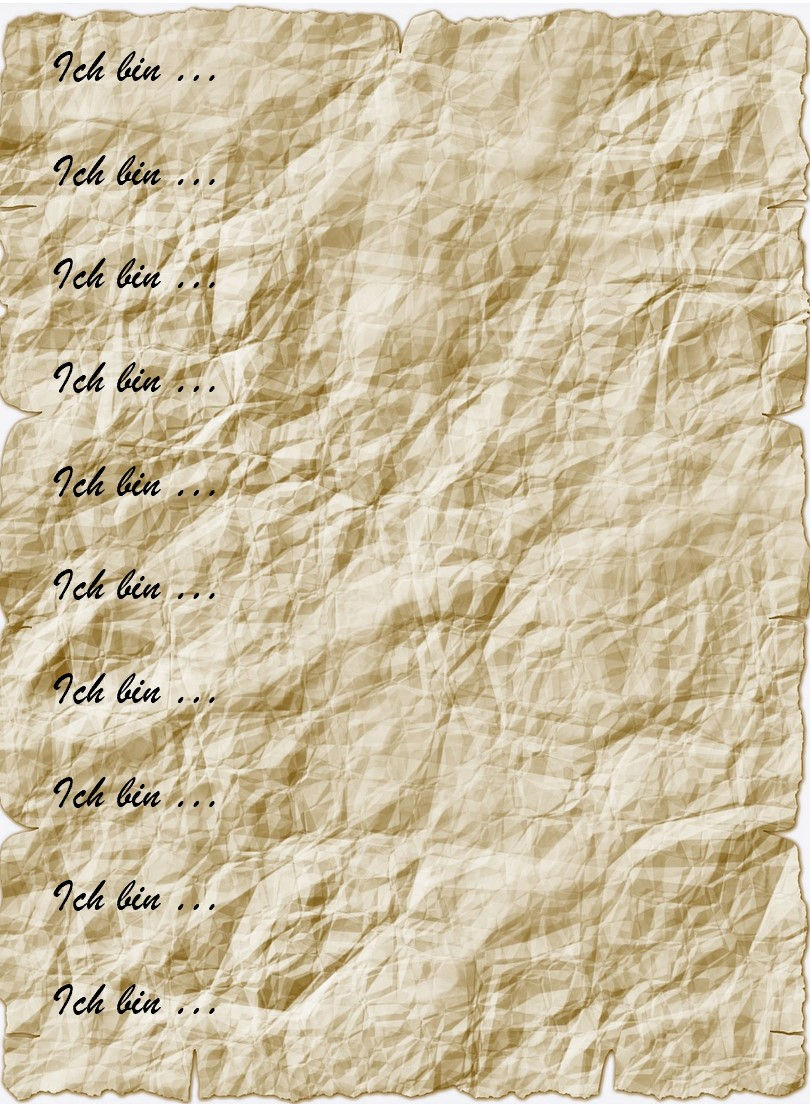 Ich bin ...
Ich bin ...
Ich bin ...
Ich bin ...
Ich bin ...
Ich bin ...
Ich bin ...
Ich bin ...
Ich bin ...
Ich bin ...